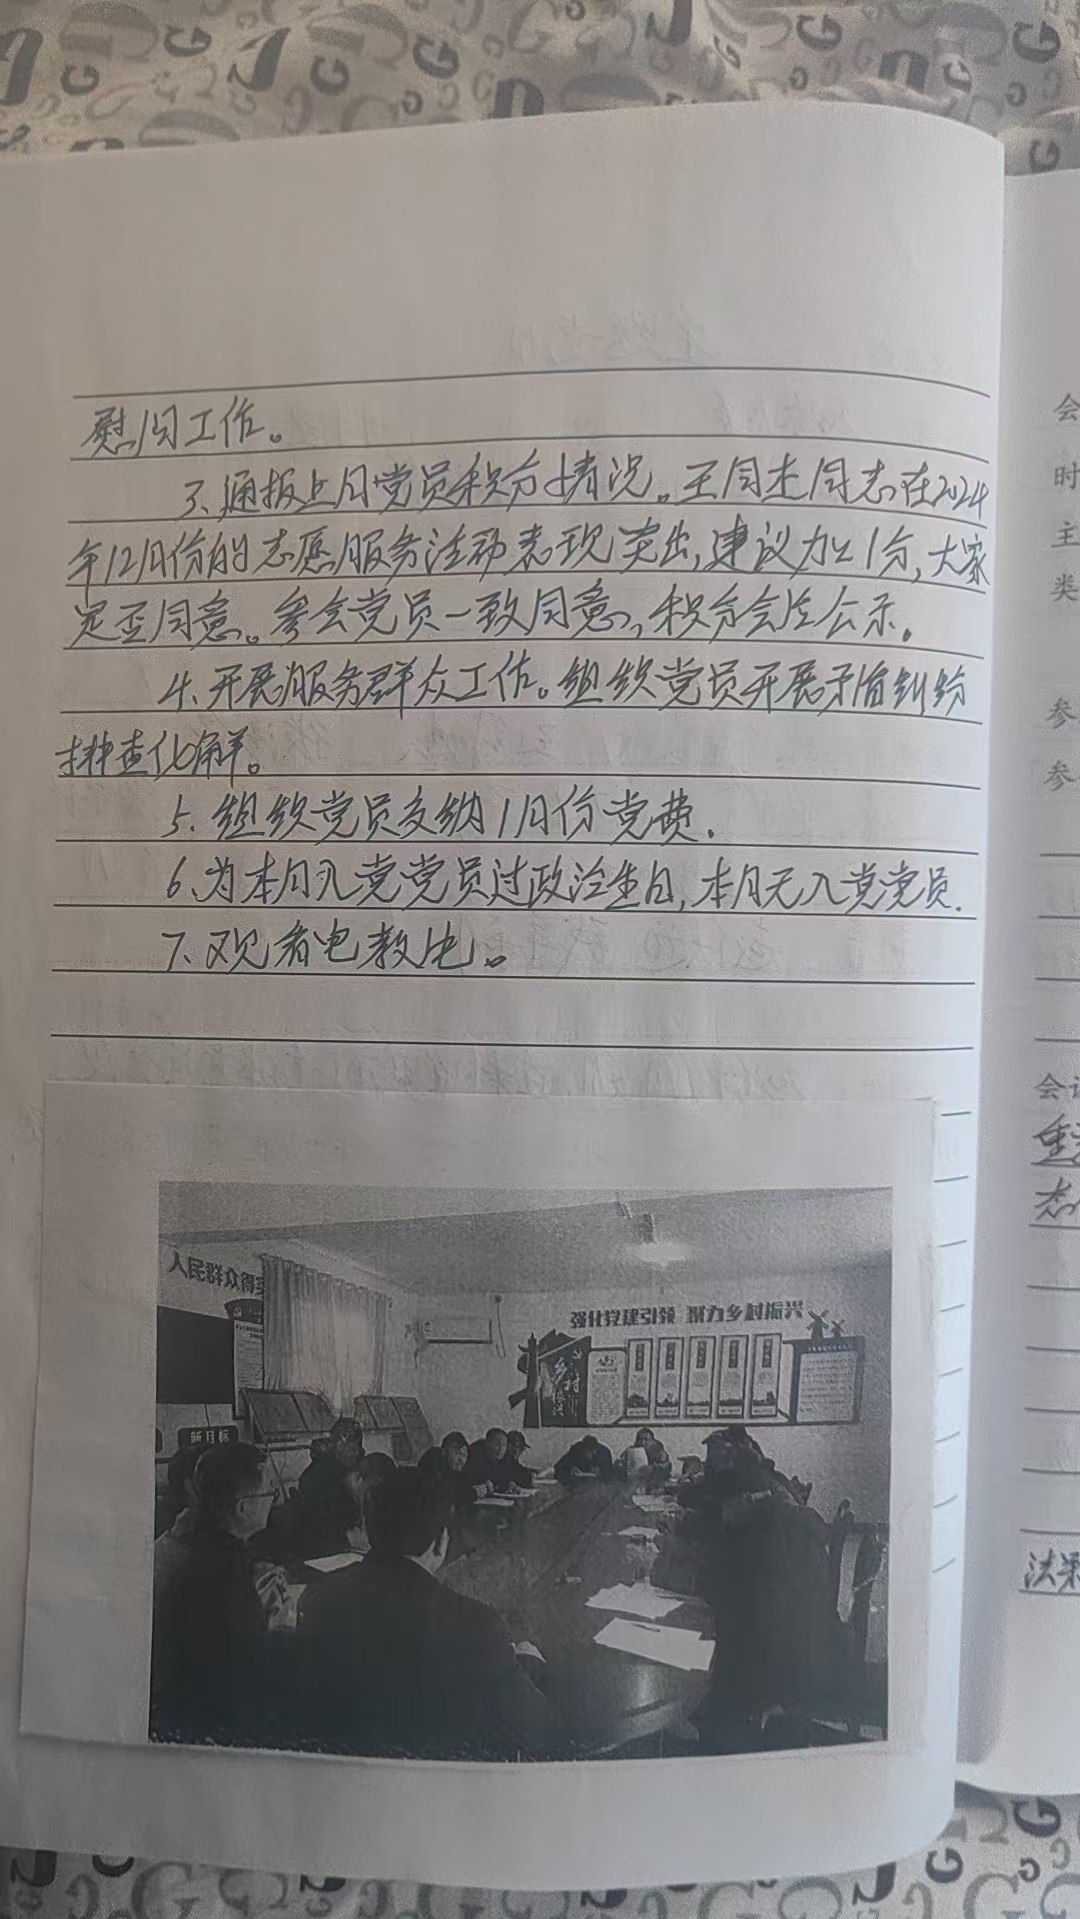 慰问工作。
3、通报上月党员积分情况。王同杰同志在2024
年12月份的志愿服务活动表现突出,建议加1分,大家
是否同意。参会党员一致同意,积分会后公示.
4、开展服务群众工作。组织党员开展矛盾纠纷
排查化解。
5、组织党员交纳1月份党费.
6、为本月入党党员过政治生日,本月无入党党员.
7、观看电教片。
人民群众得实
强化党建引领 聚力乡村振兴
乡村振兴
新目标
会
时
主
类
参
参
会议
重
志
法